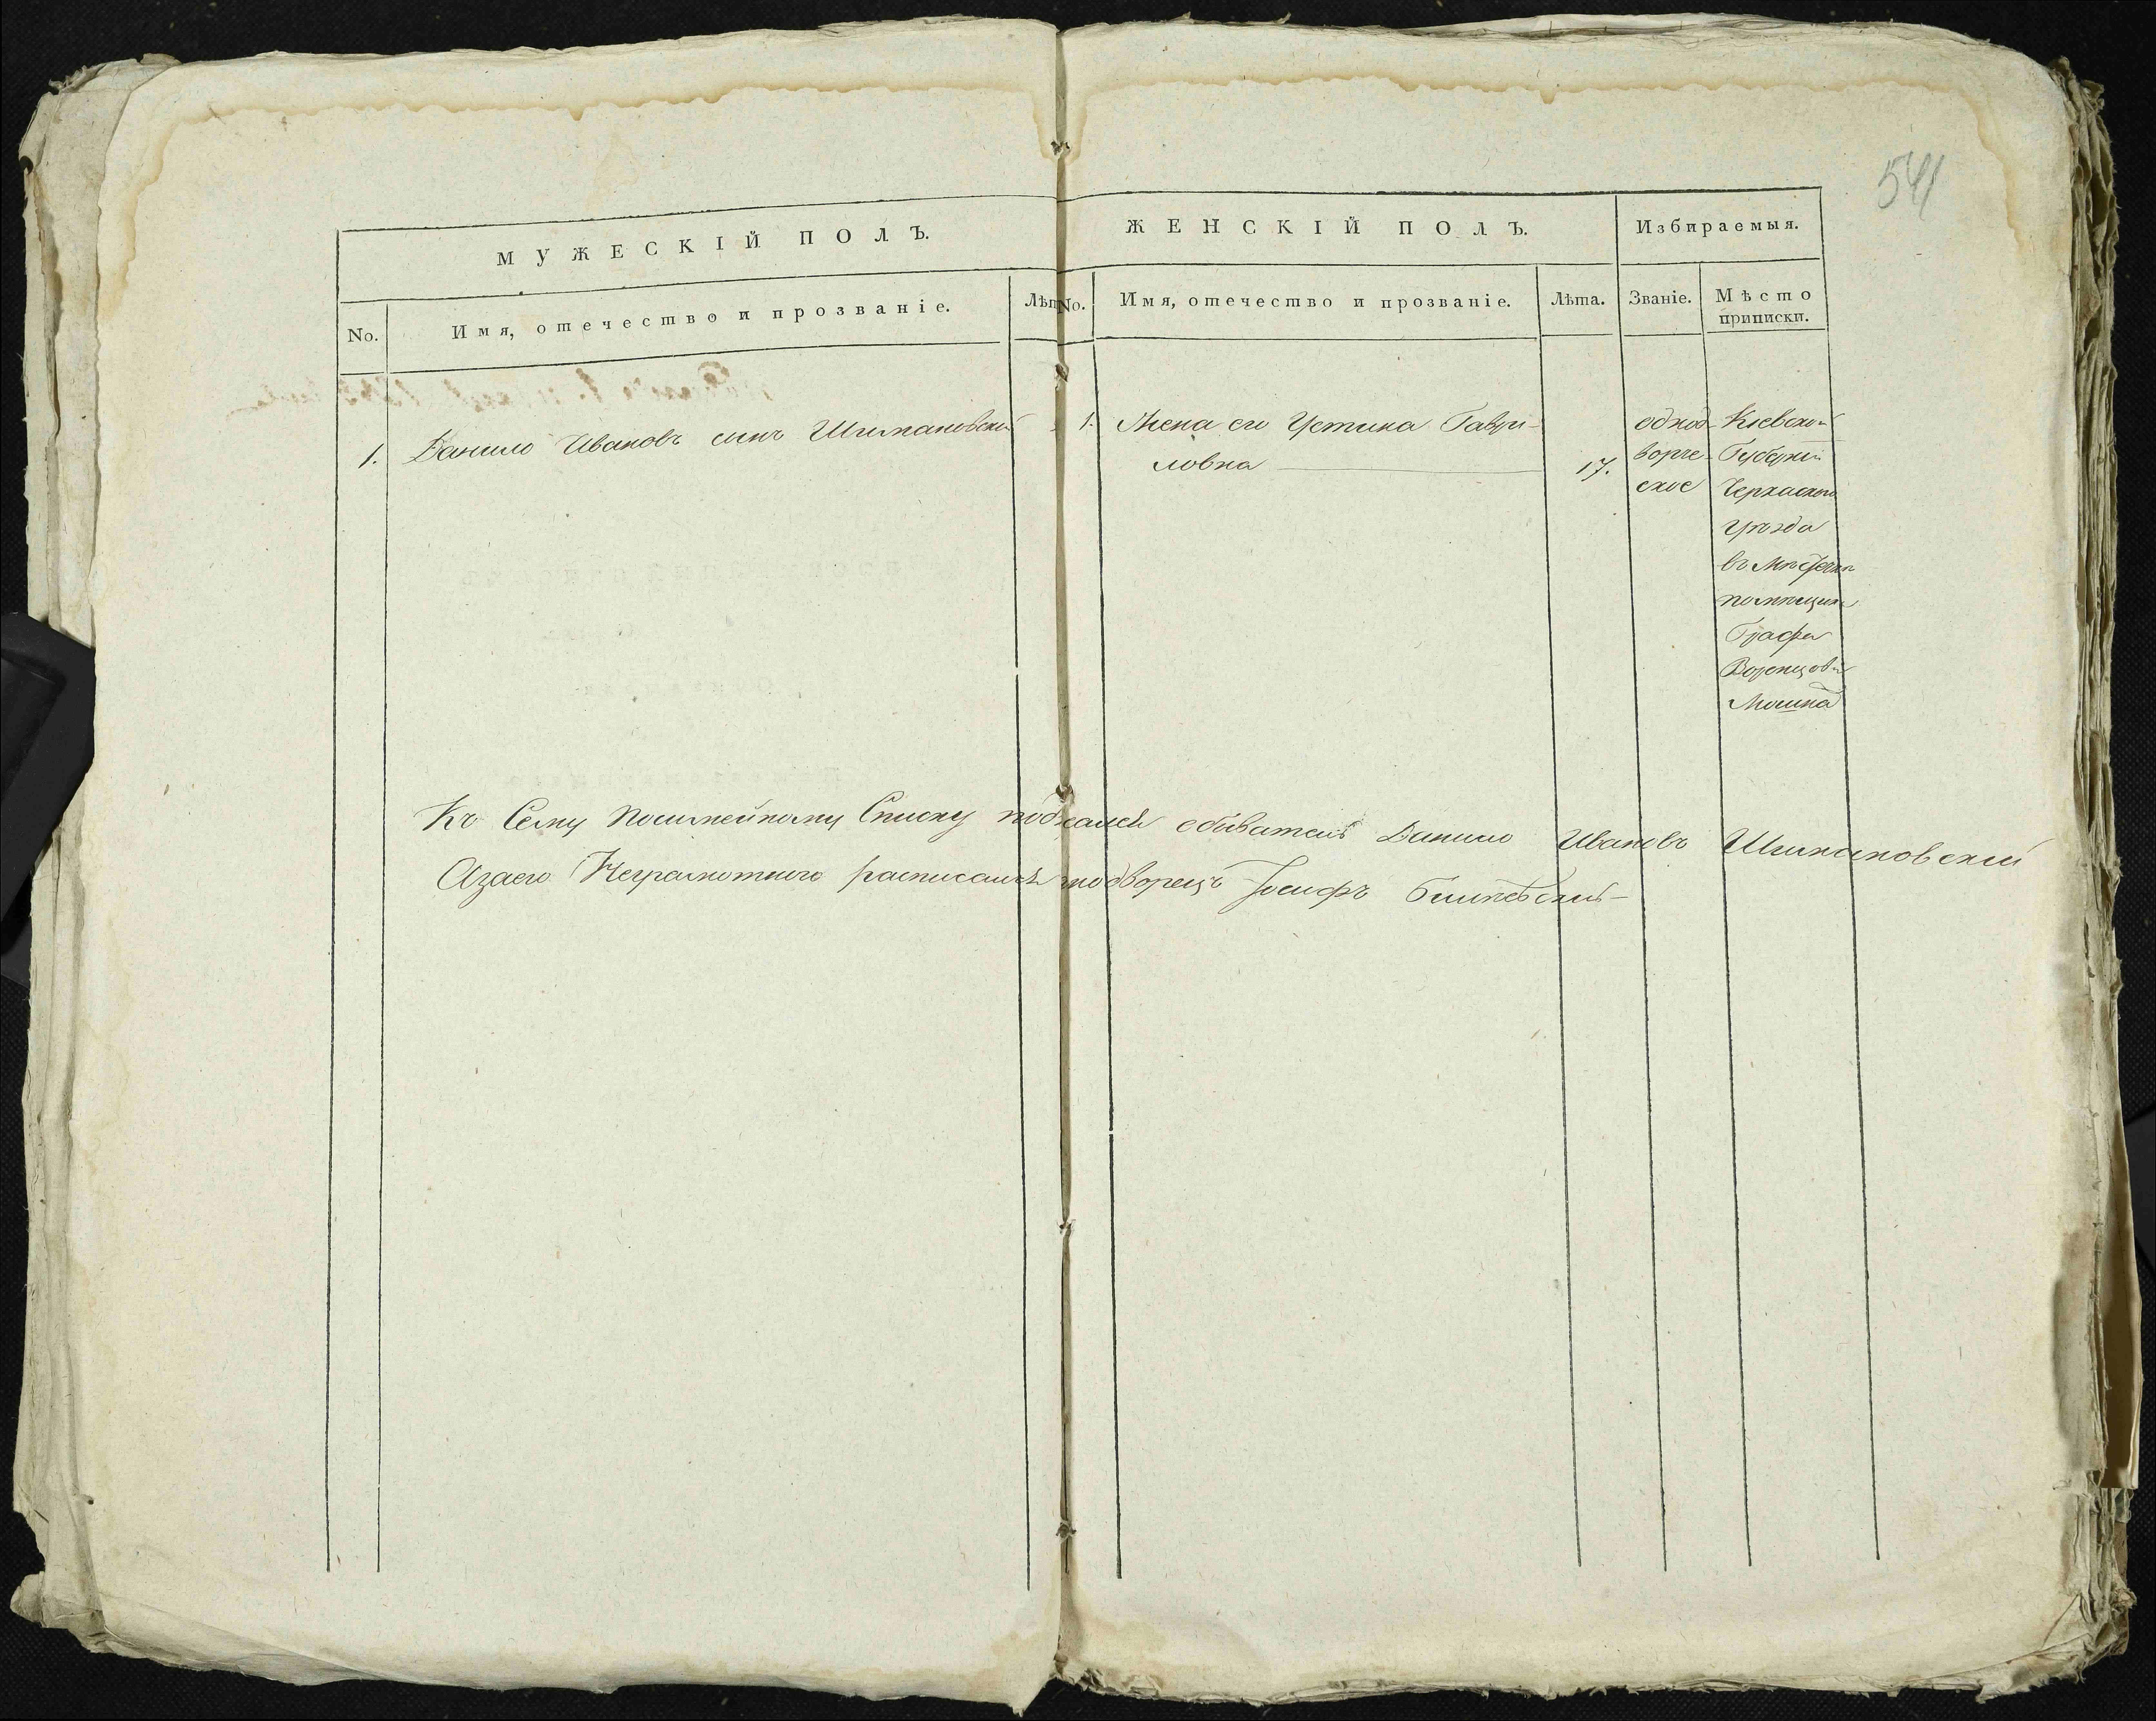 541
МУЖЕСКІЙ ПОЛЪ.
ЖЕНСКІЙ ПОЛЪ.
Избираемыя.
No.
Имя, отечество и прозваніе.
Лѣт
No.
Имя, отечество и прозваніе.
Лѣта.
Званіе.
Мѣсто
приписки.
1. Данило Ивановъ сынъ Шимановскій
1. Жена его Устина Гаври-
ловна 17.
однод-
ворче-
ское
Кіевской
Губерніи
Черкаского
Уѣзда
въ Мѣстечки
помѣщика
Графа
Воронцова
Мошна
Къ Сему Посимейному Списку подоался обыватель Данило Ивановъ Шимановскій
Азаего Неграмотного расписался одворецъ Іосифъ